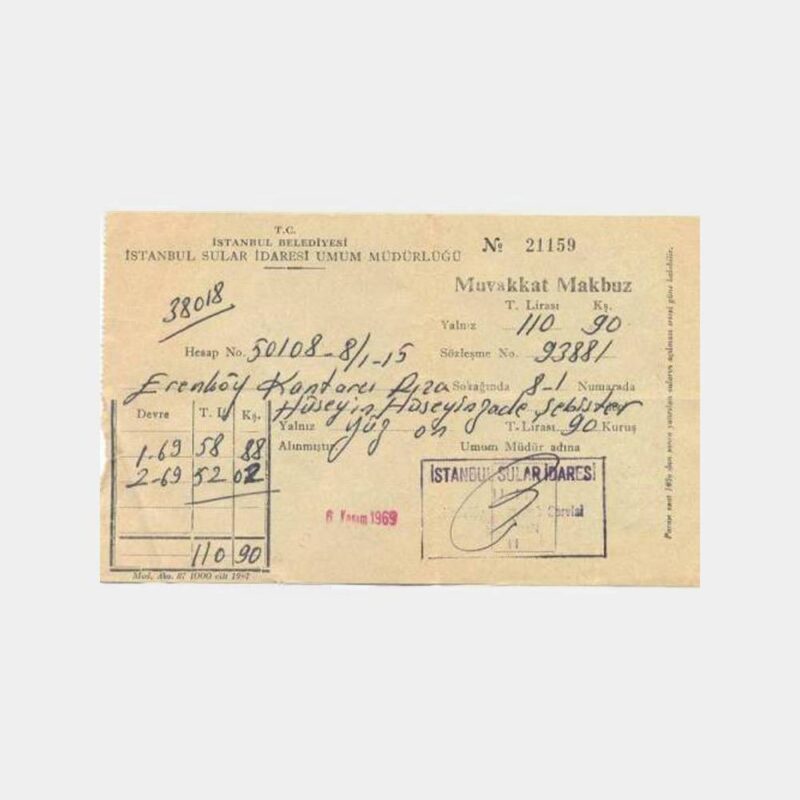 T.C.
İSTANBUL BELEDİYESİ
İSTANBUL SULAR İDARESİ UMUM MÜDÜRLÜĞÜ
№ 21159
Muvakkat Makbuz
38018
T. Lirası Kş.
Yalnız 110 90
Hesap No. 50108-8/1-15
Sözleşme No. 93881
Erenköy Kantarcı Rıza Sokağında 8-1 Numarada
Hüseyin Hüseyinzade Şebüster
Yalnız yüz on T. Lirası 90 Kuruş
Alınmıştır
Umum Müdür adına
Devre T. L. Kş.
1-69 58 88
2-69 52 02
110 90
6 Kasım 1969
İSTANBUL SULAR İDARESİ
Servisi